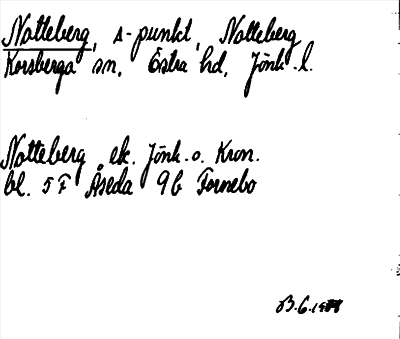 Notteberg, s-punkt, Notteberg
Korsberga sn, Östra hd, Jönk. l.
Notteberg ek. Jönk. o. Kron.
bl. 5 F Åseda 9 b Fornebo